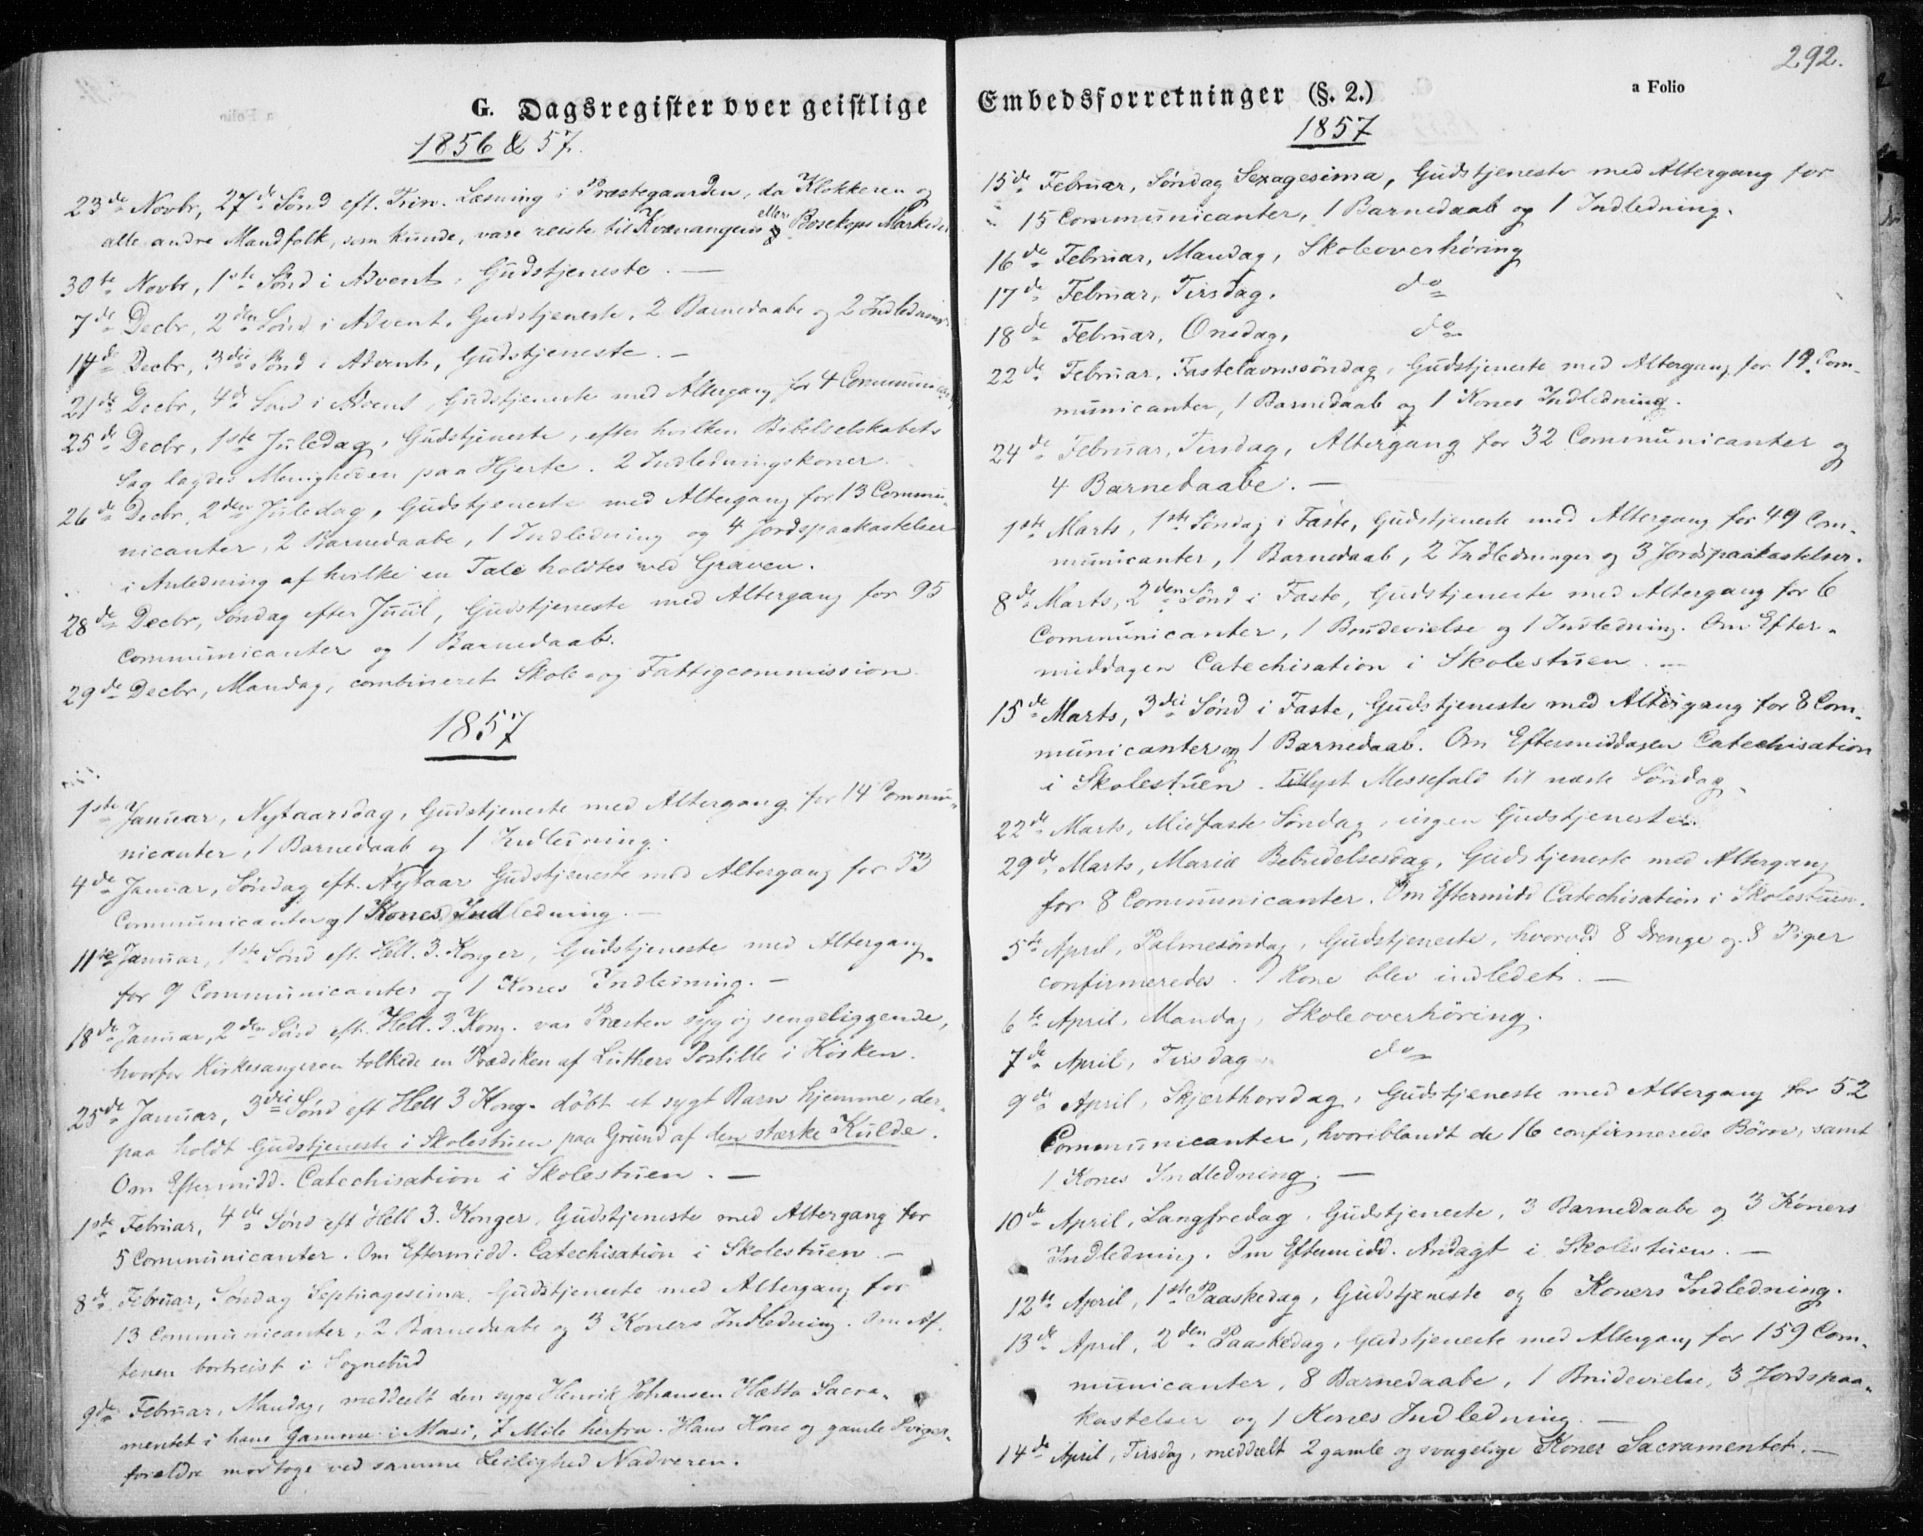 G. Dagsregister over geistlige
1856 & 57.
23de Novbr, 27de Sønd eft. Trin. Læsning i Præstegaarden, da Klokkeren og
alle andre Mandfolk, som kunde, vare reiste til Kvænangens eller Bosekops Marked.
30te Novbr, 1ste Sønd i Advent, Gudstjeneste. —
7de Decbr, 2den Sønd i Advent, Gudstjeneste, 2 Barnedaabe og 2 Indledninger
14de Decbr, 3die Sønd i Advent, Gudstjeneste. —
21de Decbr, 4de Sønd i Advent, Gudstjeneste med Altergang for 4 Communic
25de Decbr, 1ste Juledag, Gudstjeneste, efter hvilken Bibelselskabets
Sag lagdes Menigheden paa Hjerte. 2 Indledningskoner.
26de Decbr, 2den Juledag, Gudstjeneste med Altergang for 13 Commu-
nicanter, 2 Barnedaabe, 1 Indledning og 4 Jordspaakastelser
i Anledning af hvilke en Tale holdtes ved Graven.
28de Decbr, Søndag efter Juul, Gudstjeneste med Altergang for 95
Communicanter og 1 Barnedaab.
29de Decbr, Mandag, combineret Skole- og Fattigcommission
1857
1ste Januar, Nytaarsdag, Gudstjeneste med Altergang for 14 Commu-
nicanter, 1 Barnedaab og 1 Indledning.
4de Januar, Søndag eft. Nytaar Gudstjeneste med Altergang for 53
Communicanter og 1 Kones Indledning. —
11te Januar, 1ste Sønd eft. Hell. 3. Konger, Gudstjeneste med Altergang
for 9 Communicanter og 1 Kones Indledning. —
18de Januar, 2den Sønd eft. Hell. 3. Kong. var Præsten syg og sengeliggende,
hvorfor Kirkesangeren tolkede en Prædiken af Luthers Postille i Kirken.
25de Januar, 3die Sønd eft Hell 3 Kong. døbt et sygt Barn hjemme, der-
paa holdt Gudstjeneste i Skolestuen paa Grund af den stærke Kulde.
Om Eftermidd. Catechisation i Skolestuen. —
1ste Februar, 4de Sønd eft Hell 3. Konger, Gudstjeneste med Altergang for
5 Communicanter. Om Eftermidd. Catechisation i Skolestuen —
8de Februar, Søndag Septuagesima, Gudstjeneste med Altergang for
13 Communicanter, 2 Barnedaabe og 3 Koners Indledning. Om Af-
tenen bortreist i Sognebud
9de Februar, Mandag, meddeelt den syge Henrik Johansen Hætta Sacra-
mentet i hans Gamme i Masi, 7 Mile herfra. Hans Kone og gamle Sviger-
forældre modtoge ved samme Leilighed Nadveren.
292.
Embedsforretninger (§. 2.)
a Folio
1857
15de Februar, Søndag Sexagesima, Gudstjeneste med Altergang for
15 Communicanter, 1 Barnedaab og 1 Indledning.
16de Februar, Mandag, Skoleoverhøring
17de Februar, Tirsdag, do
18de Februar, Onsdag, do
22de Februar, Fastelavnssøndag, Gudstjeneste med Altergang for 19 Com-
municanter, 1 Barnedaab og 1 Kones Indledning.
24de Februar, Tirsdag, Altergang for 32 Communicanter og
4 Barnedaabe. —
1ste Marts, 1ste Søndag i Faste, Gudstjeneste med Altergang for 49 Com-
municanter, 1 Barnedaab, 2 Indledninger og 3 Jordspaakastelser.
8de Marts, 2den Sønd i Faste, Gudstjeneste med Altergang for 6
Communicanter, 1 Brudevielse og 1 Indledning. Om Efter-
middagen Catechisation i Skolestuen. —
15de Marts, 3die Sønd i Faste, Gudstjeneste med Altergang for 8 Com-
municanter og 1 Barnedaab. Om Eftermiddagen Catechisation
i Skolestuen. Tillyst Messefald til næste Søndag.
22de Marts, Midfaste Søndag, ingen Gudstjeneste.
29de Marts, Mariæ Bebudelsesdag, Gudstjeneste med Altergang
for 8 Communicanter. Om Eftermidd Catechisation i Skolestuen.
5te April, Palmesøndag, Gudstjeneste, hvorved 8 Drenge og 8 Piger
confirmeredes. 1 Kone blev indledet. —
6te April, Mandag, Skoleoverhøring.
7de April, Tirsdag do
9de April, Skjærthorsdag, Gudstjeneste med Altergang for 52
Communicanter, hvoriblandt de 16 confirmerede Børn, samt
1 Kones Indledning. —
10de April, Langfredag, Gudstjeneste, 3 Barnedaabe og 3 Koners
Indledning. Om Eftermidd. Andagt i Skolestuen. —
12te April, 1ste Paaskedag, Gudstjeneste og 6 Koners Indledning.
13de April, 2den Paaskedag, Gudstjeneste med Altergang for 159 Com-
municanter, 8 Barnedaabe, 1 Brudevielse, 3 Jordspaa-
kastelser og 1 Kones Indledning. —
14de April, Tirsdag, meddeelt 2 gamle og svagelige Koner Sacramentet. —